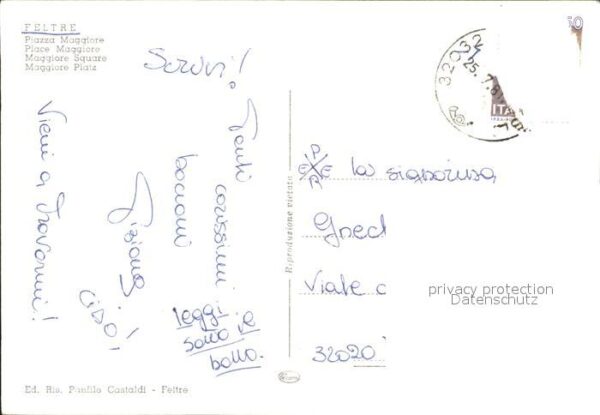 FELTRE
Piazza Maggiore
Place Maggiore
Maggiore Square
Maggiore Platz
Scrivi!
Tanti
carissimi
bacioni
Tiziana
CIAO!
Leggi
sotto il
bollo.
Vieni a
trovarmi!
Riproduzione vietata
32032
25.7.8
ITA
PER
La signorina
Viale
32020
privacy protection
Datenschutz
Ed. Ris. Panfilo Castaldi - Feltre